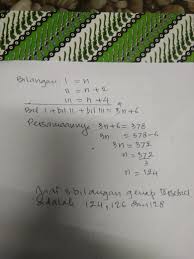 Bilangan I = n
II = n + 2
III = n + 4 +
Bil I + bil II + bil III = 3n + 6
Persamaannya: 3n + 6 = 378
3n = 378 - 6
3n = 372
n = 372
3
n = 124
Jadi 3 bilangan genap
adalah 124, 126 dan 128